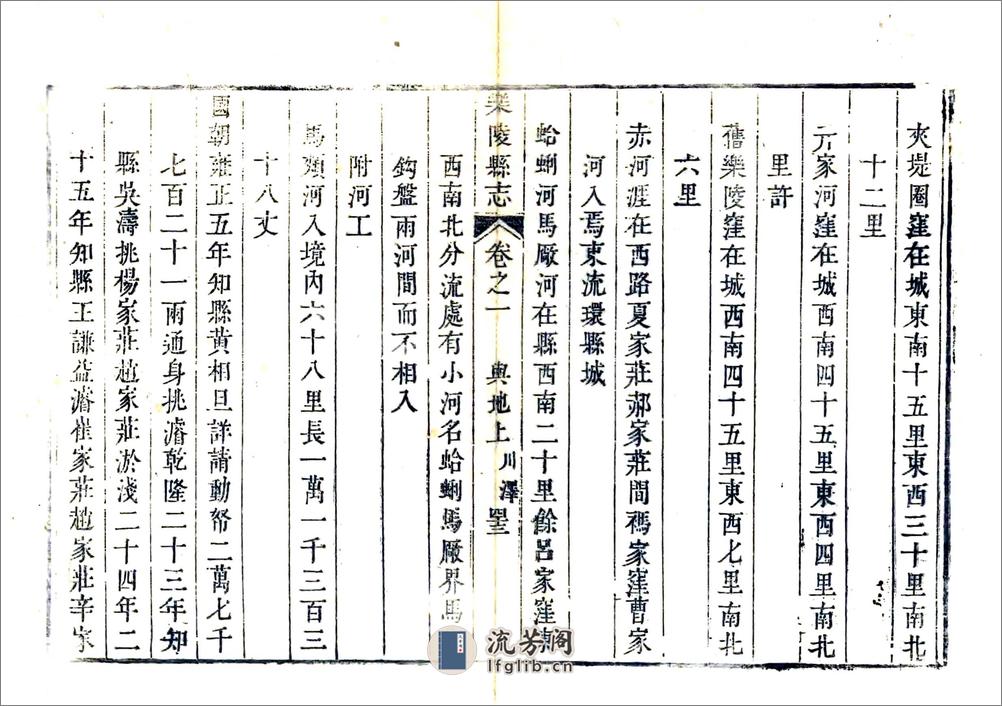 夾堤圈窪在城東南十五里東西三十里南北
十二里
亓家河窪在城西南四十五里東西四里南北
里許
舊樂陵窪在城西南四十五里東西七里南北
六里
赤河涯在西路夏家莊郝家莊間禡家窪曹家
河入焉東流環縣城
蛤蜊河馬厰河在縣西南二十里餘呂家窪東
樂陵縣志 卷之一 輿地上 川澤 罜
西南北分流處有小河名蛤蜊馬厰界馬
鈎盤兩河間而不相入
附河工
馬頰河入境内六十八里長一萬一千三百三
十八丈
國朝雍正五年知縣黄相旦詳請動帑二萬七千
七百二十一兩通身挑濬乾隆二十三年知
縣吳濤挑楊家莊趙家莊淤淺二十四年二
十五年知縣王謙益濬崔家莊趙家莊辛家
流芳阁
lfglib.cn